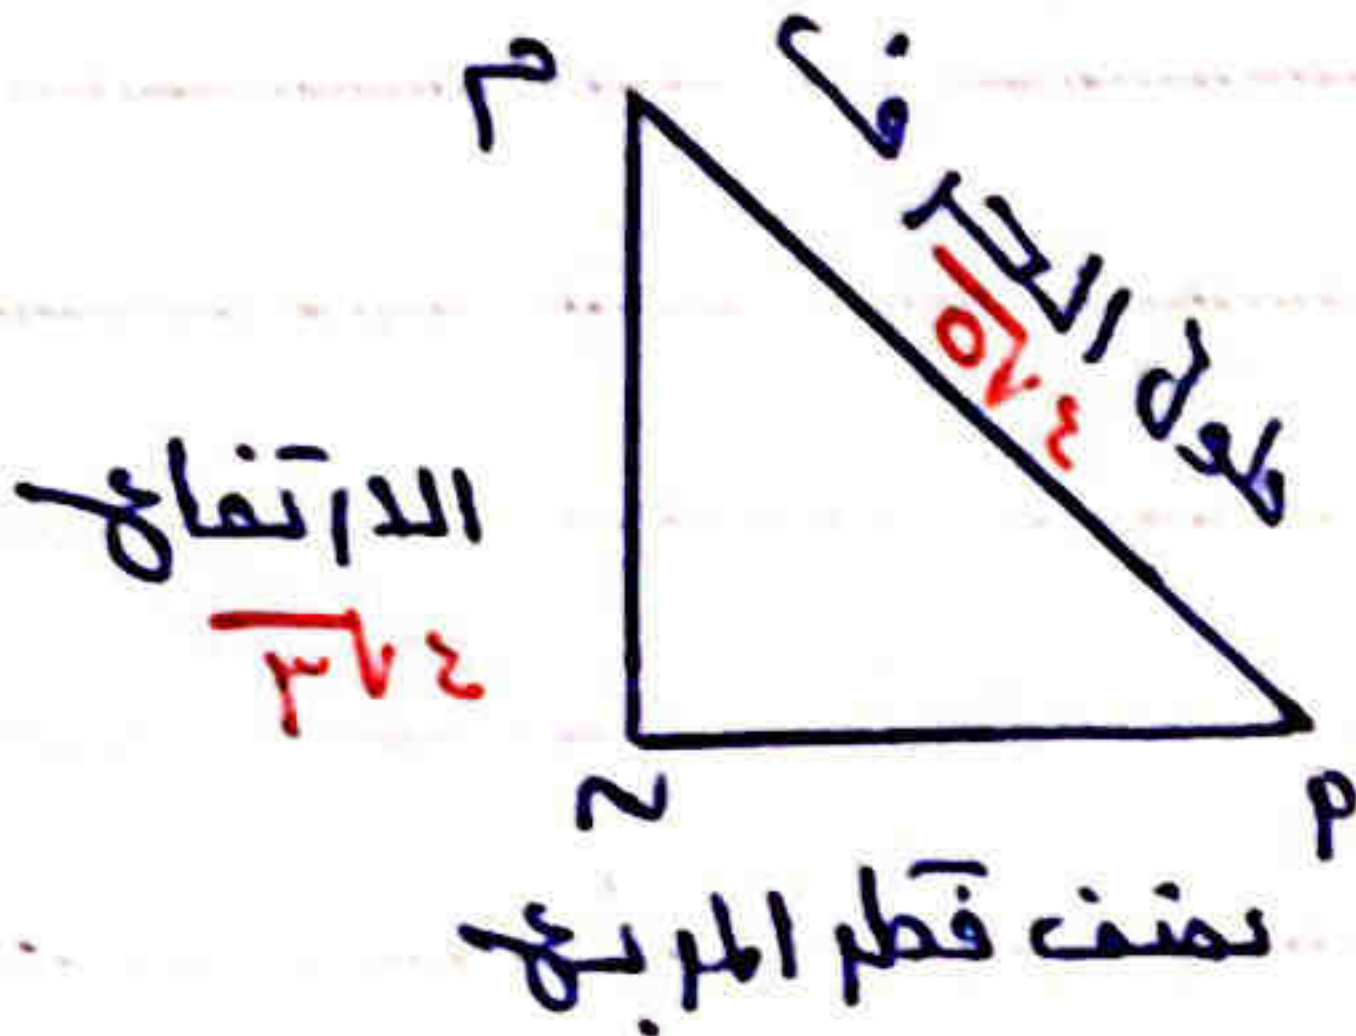 م
طول الحرف
٤√٥
الارتفاع
٤√٣
ن
م
نصف قطر المربع